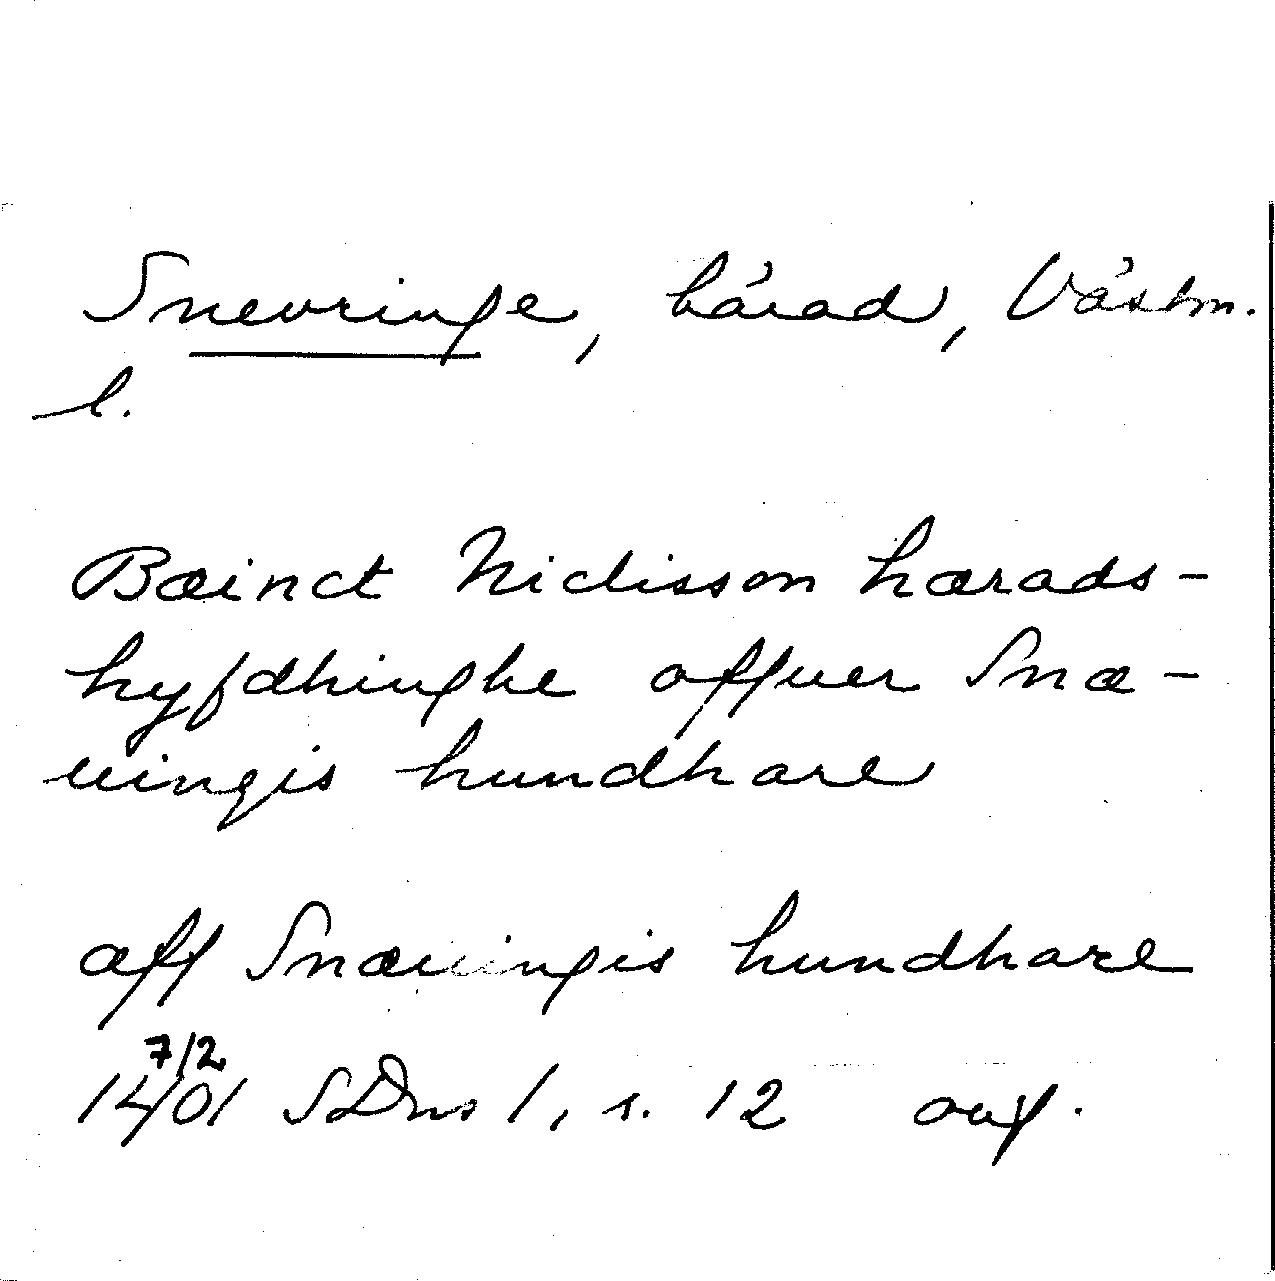 Snevringe, härad, Västm.
l.
Bæinct Niclisson hærads-
hyfdhinghe offuer Snæ-
uingis hundhare
aff Snæuingis hundhare
7/2
1401 SDns 1, s. 12 avf.